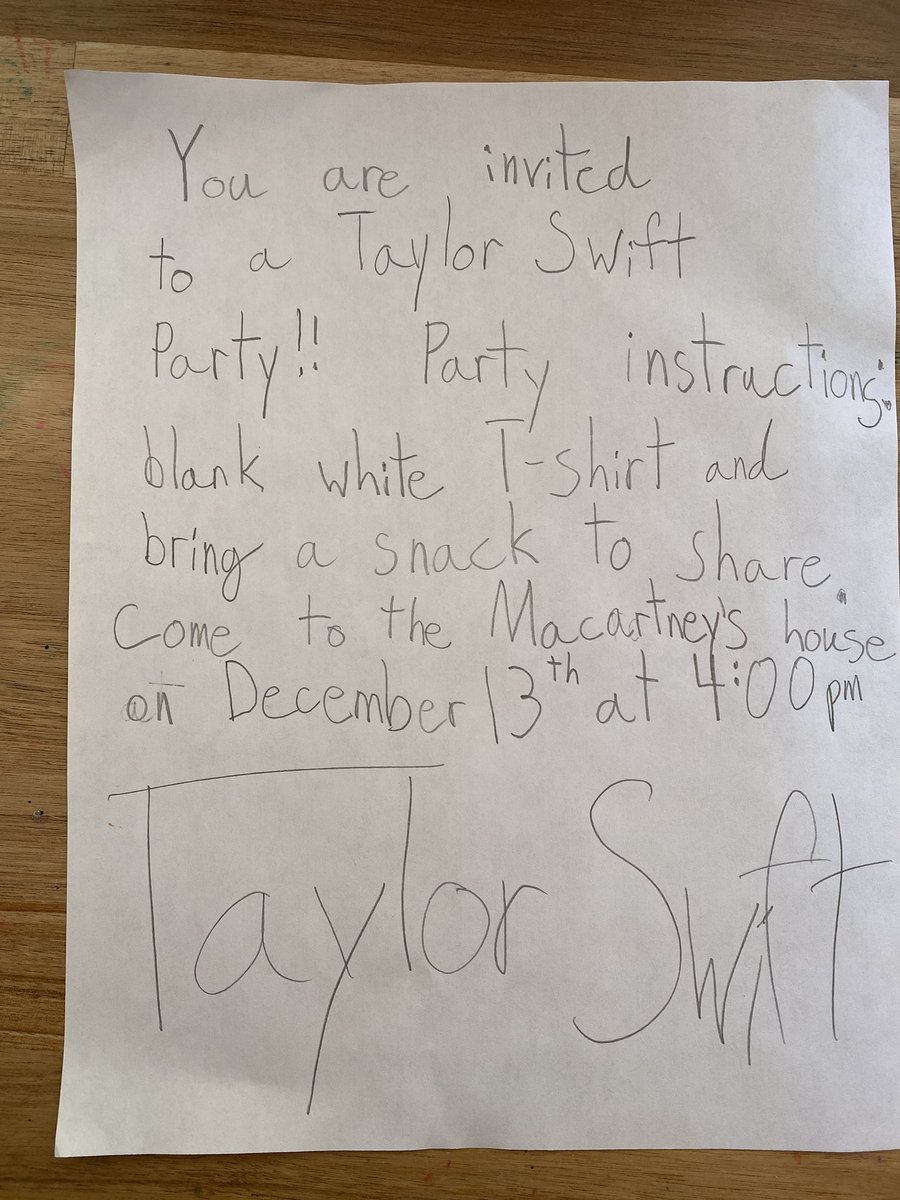 You are invited
to a Taylor Swift
Party!! Party instructions:
blank white T-shirt and
bring a snack to share.
Come to the Macartney's house
on December 13th at 4:00pm
Taylor Swift